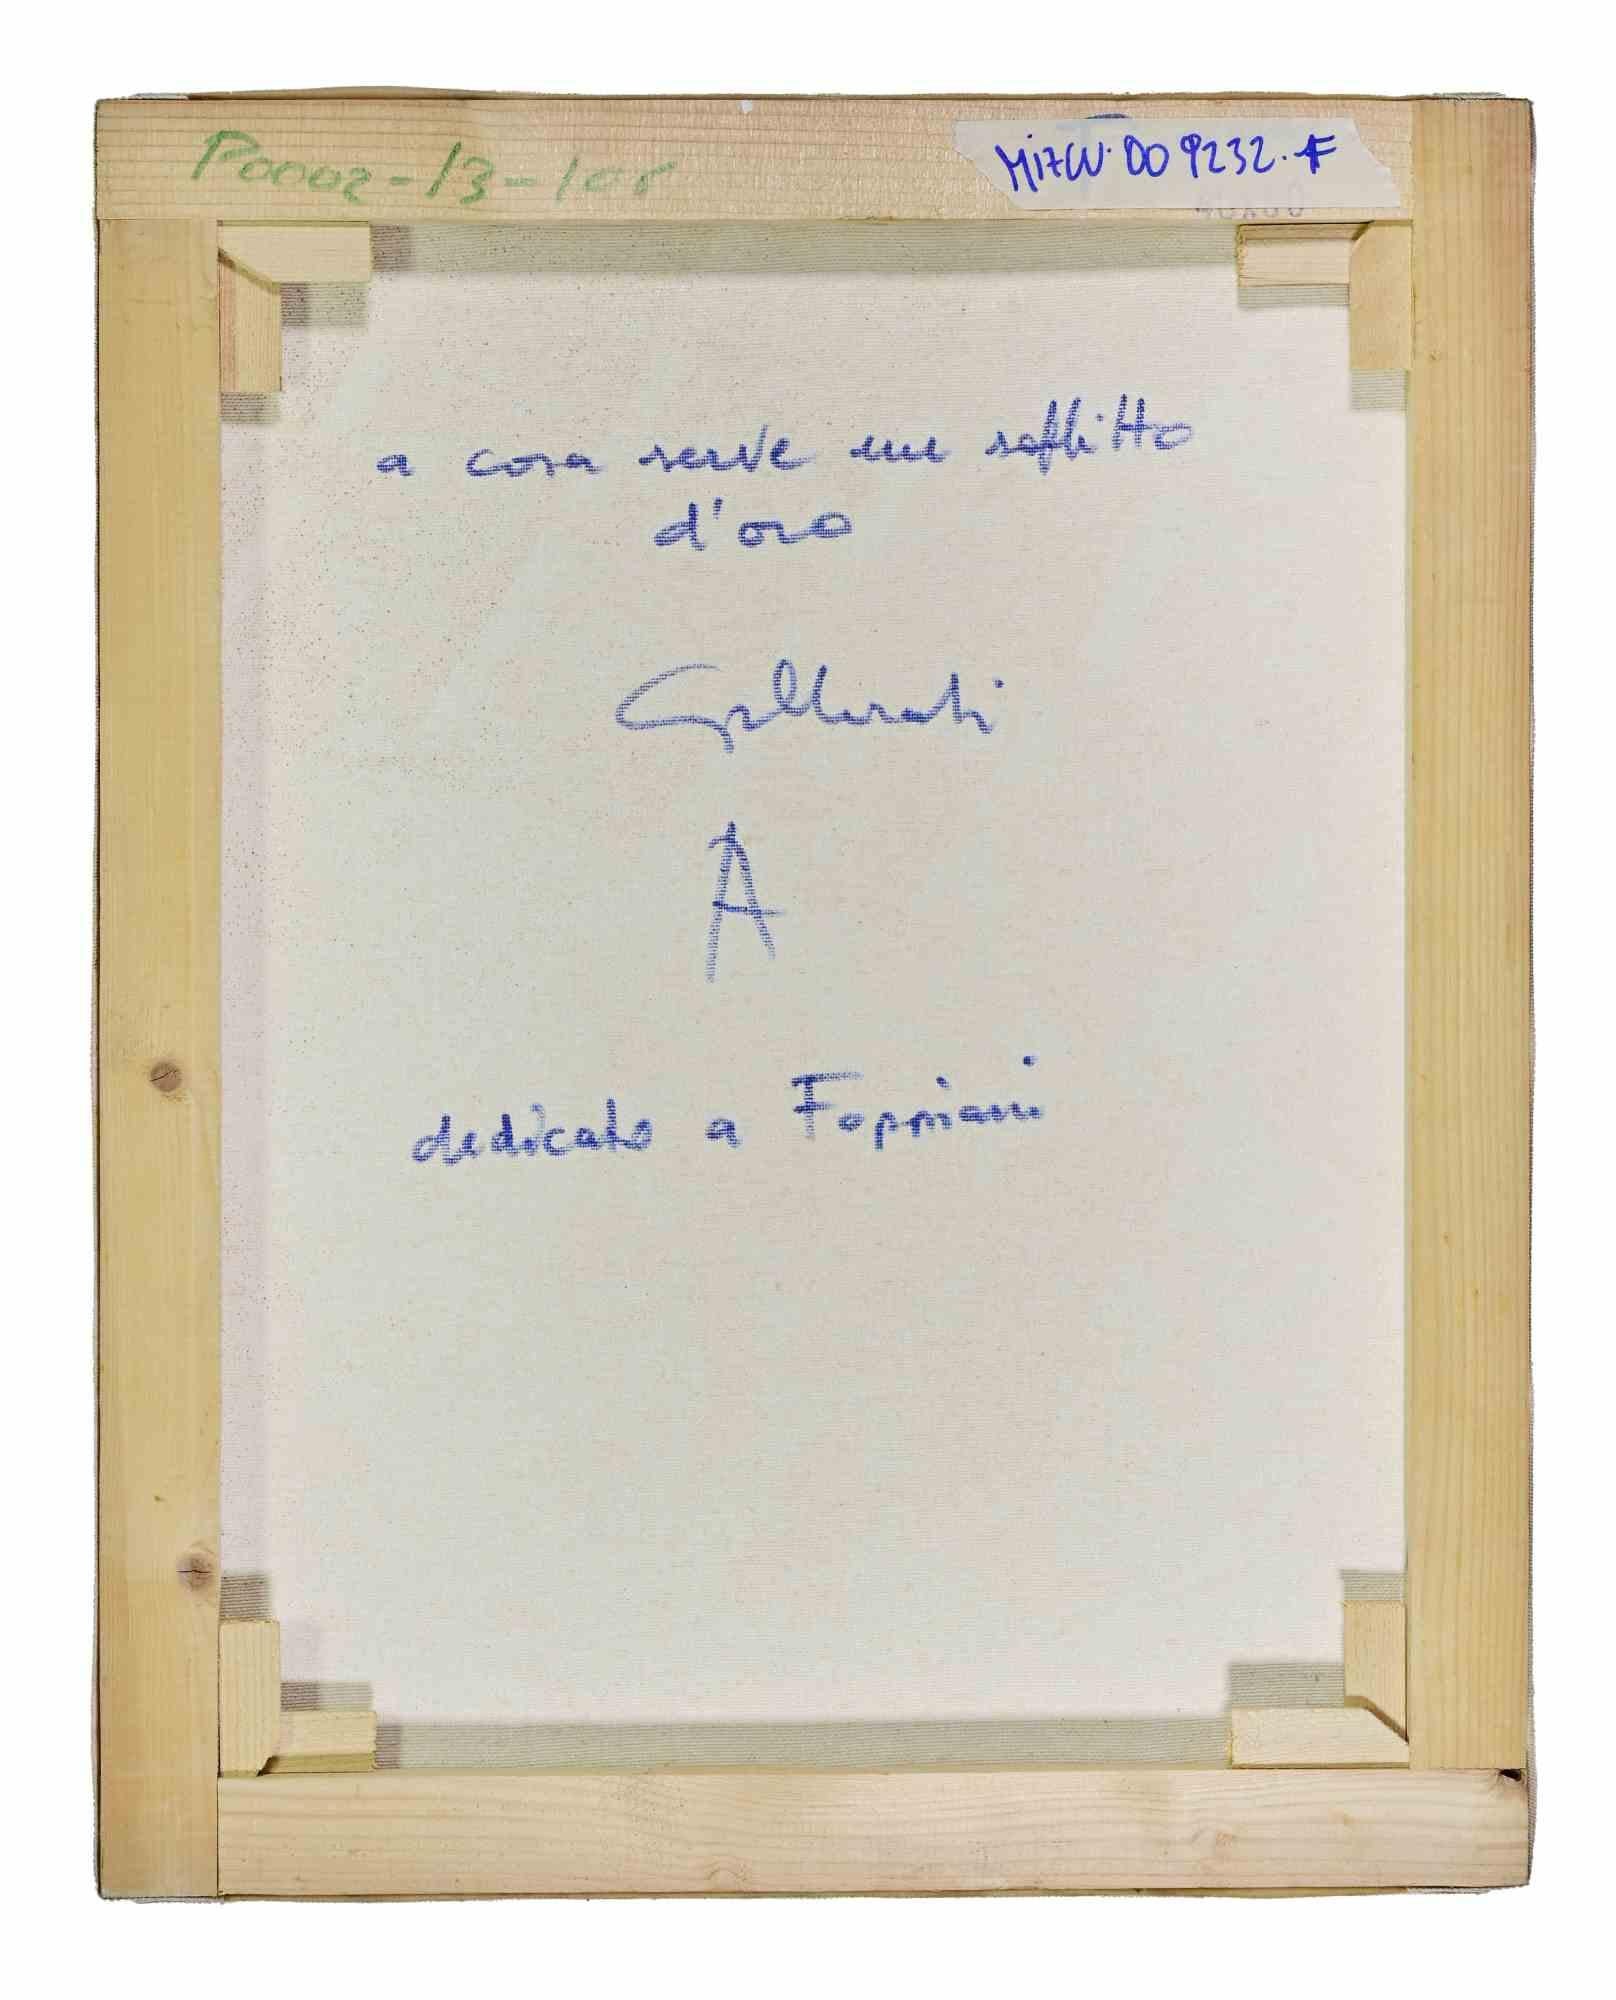 P0002-13-105
Mi7W. 009232.F
a cosa serve un soffitto
d'oro
Gallerati
A
dedicato a Foppiani